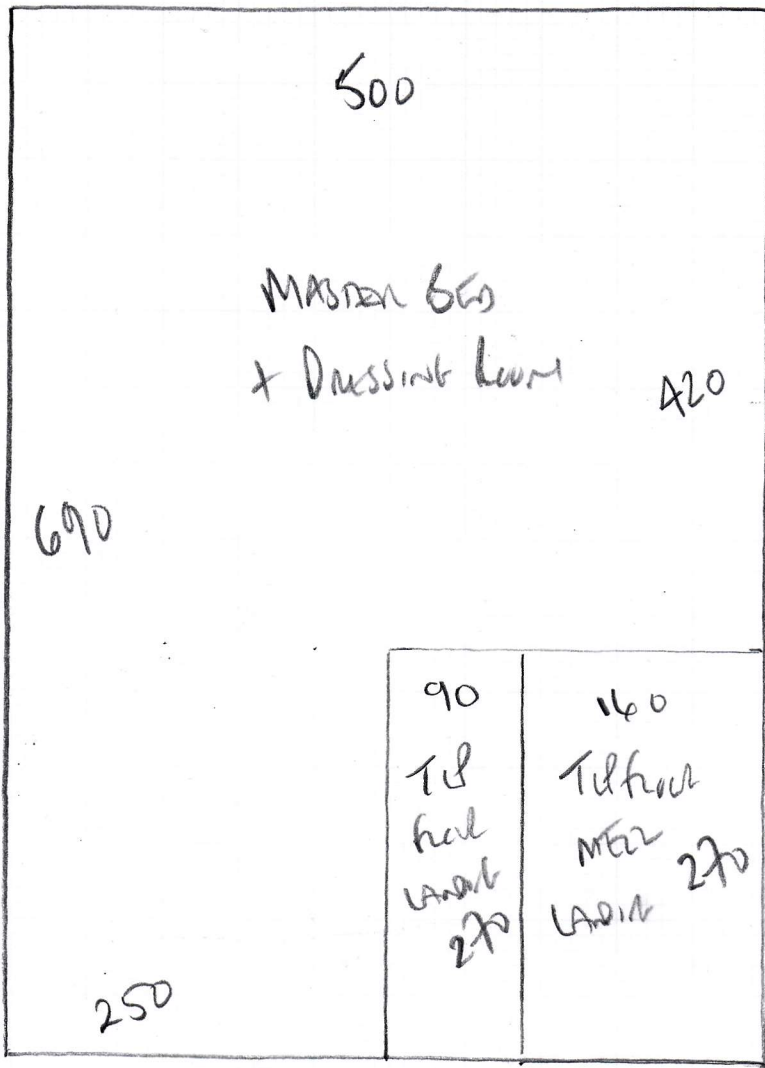 500
MASTER BED
+ DRESSING ROOM
420
690
90
TOP
FLOOR
LANDING
270
160
TOP FLOOR
MEZZ
LANDING
270
250